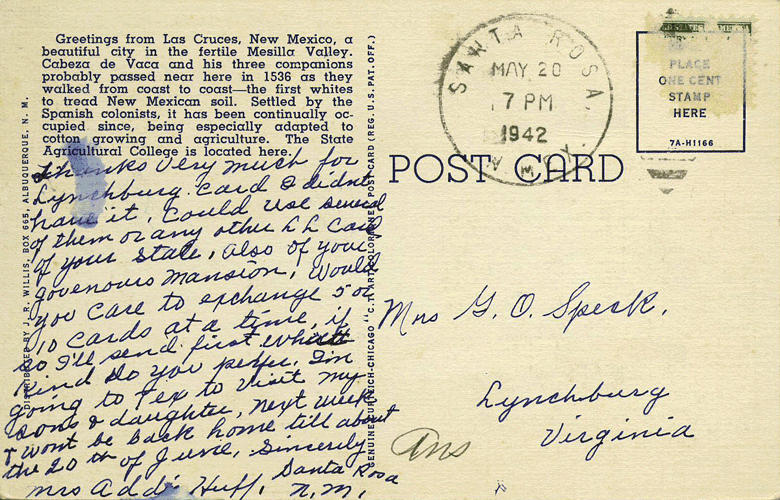 Greetings from Las Cruces, New Mexico, a
beautiful city in the fertile Mesilla Valley.
Cabeza de Vaca and his three companions
probably passed near here in 1536 as they
walked from coast to coast—the first whites
to tread New Mexican soil. Settled by the
Spanish colonists, it has been continually oc-
cupied since, being especially adapted to
cotton growing and agriculture. The State
Agricultural College is located here.
Thanks very much for
Lynchburg card I didn't
have it, Could use several
of them or any other LL Card
of your state, also of your
govenors mansion, Would
you care to exchange 5 or
10 cards at a time, if
so I'll send first What
kind do you prefer, I'm
going to Tex to visit my
sons & daughter, next week,
& wont be back home till about
the 20th of June, Sincerely
Mrs Addi Huff, Santa Rosa
N.M.
DISTRIBUTED BY J. R. WILLIS, BOX 665, ALBUQUERQUE, N. M.
GENUINE CURTEICH-CHICAGO "C.T. ART-COLORTONE" POST CARD (REG. U.S. PAT. OFF.)
SANTA ROSA,
N. MEX.
MAY 20
7 PM
1942
PLACE
ONE CENT
STAMP
HERE
7A-H1166
POST CARD
Mrs G. O. Speck.
Lynchburg
Virginia
Ans